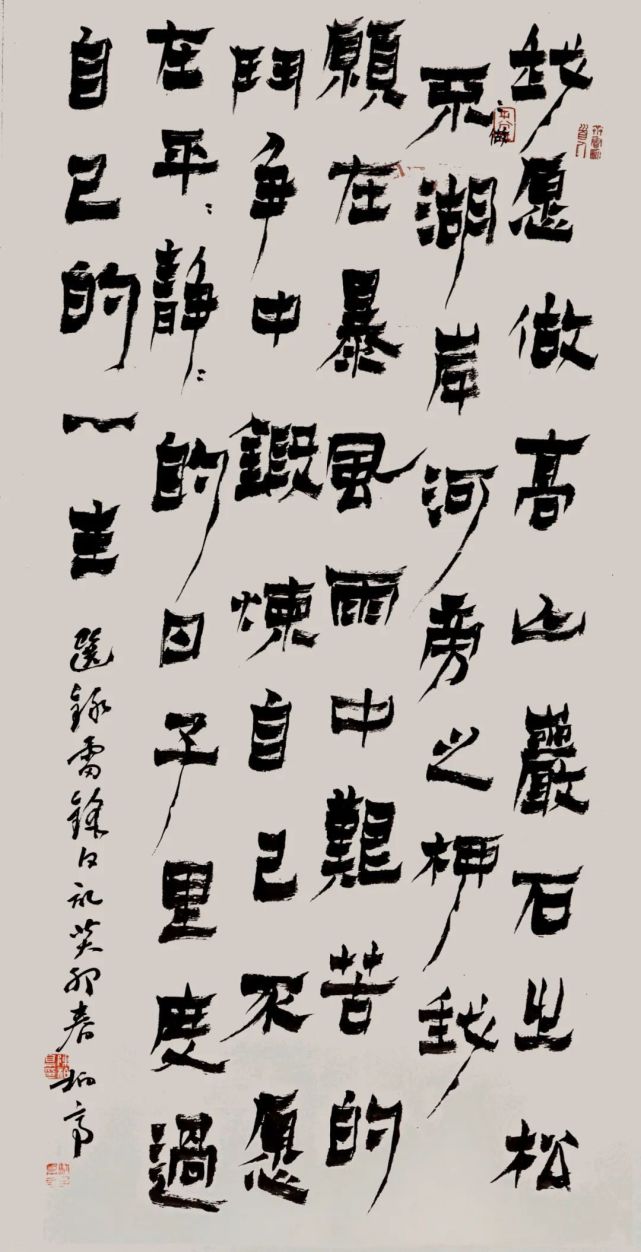 我愿做高山巖石之松
不做湖岸河旁之柳我
願在暴風雨中艱苦的
鬥争中鍛煉自己不愿
在平:静:的日子里度過
自己的一生
選錄雷鋒日記癸卯春